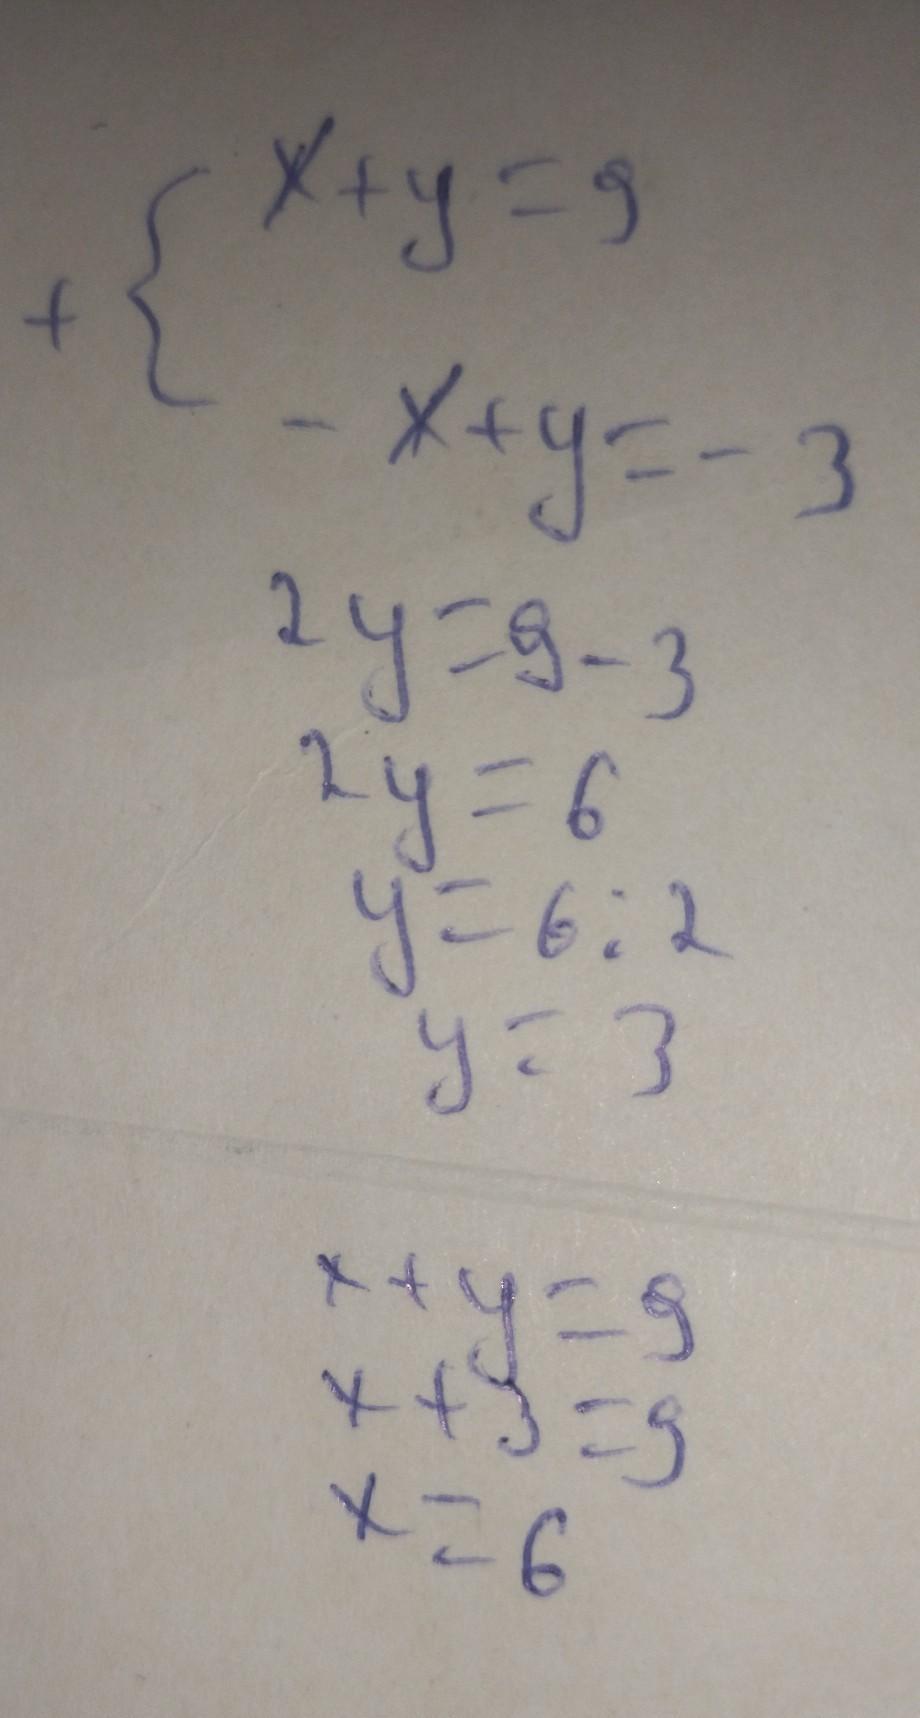 x+y=9
+ {
-x+y=-3
2y=9-3
2y=6
y=6:2
y=3
x+y=9
x+3=9
x=6